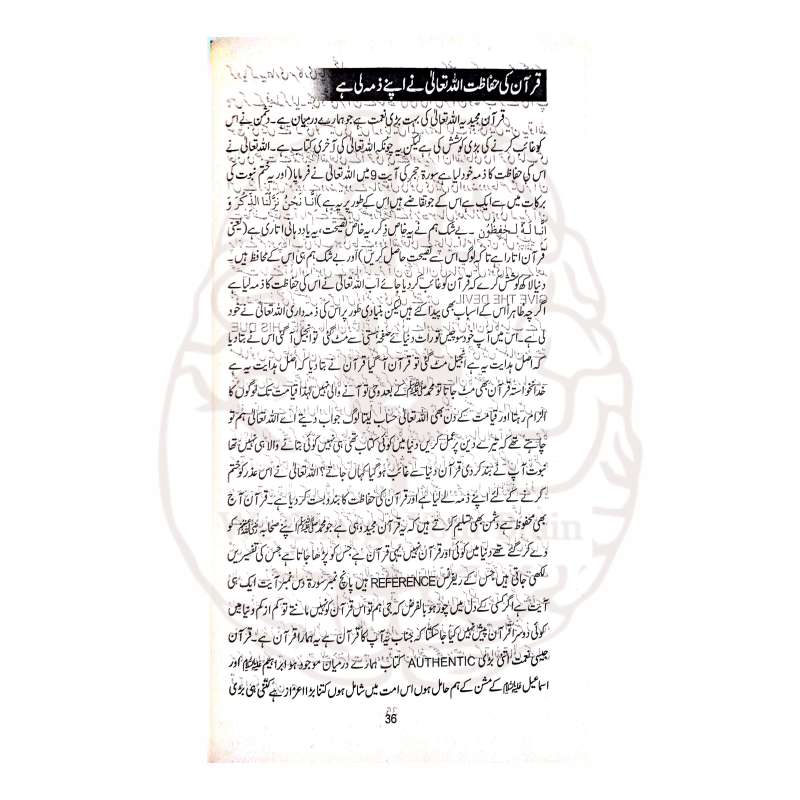 قرآن کی حفاظت اللہ تعالیٰ نے اپنے ذمہ لی ہے
قرآن مجید یہ اللہ تعالیٰ کی بہت بڑی نعمت ہے جو ہمارے درمیان ہے۔ دشمن نے اس
کو غائب کرنے کی بڑی کوشش کی ہے لیکن یہ چونکہ اللہ تعالیٰ کی آخری کتاب ہے۔ اللہ تعالیٰ نے
اس کی حفاظت کا ذمہ خود لیا ہے سورۃ حجر کی آیت 9 میں اللہ تعالیٰ نے فرمایا (اور یہ ختم نبوت کی
برکات میں سے ایک ہے اس کے جو تقاضے ہیں اس کے طور پر یہ ہے) اِنَّا نَحْنُ نَزَّلْنَا الذِّكْرَ وَ
اِنَّا لَهٗ لَحٰفِظُوْنَ ۔ بے شک ہم نے یہ خاص ذکر، یہ خاص نصیحت، یہ یاد دہانی اتاری ہے (یعنی
قرآن اتارا ہے تاکہ لوگ اس سے نصیحت حاصل کریں) اور بے شک ہم ہی اس کے محافظ ہیں۔
دنیا لاکھ کوشش کرے کہ قرآن کو غائب کر دیا جائے اب اللہ تعالیٰ نے اس کی حفاظت کا ذمہ لیا ہے
اگرچہ ظاہراً اس کے اسباب بھی پیدا کئے ہیں لیکن بنیادی طور پر اس کی ذمہ داری اللہ تعالیٰ نے خود
لی ہے۔ اس میں آپ خود سوچیں تورات دنیا کے صفحہ ہستی سے مٹ گئی تو انجیل آ گئی اس نے بتا دیا
کہ اصل ہدایت یہ ہے انجیل مٹ گئی تو قرآن آ گیا قرآن نے بتا دیا کہ اصل ہدایت یہ ہے
خدانخواستہ قرآن بھی مٹ جاتا تو محمد ﷺ کے بعد وحی تو آنے والی نہیں لہٰذا قیامت تک لوگوں کا
الزام رہتا اور قیامت کے دن بھی اللہ تعالیٰ حساب لیتا لوگ جواب دیتے اے اللہ تعالیٰ ہم تو
چاہتے تھے کہ تیرے دین پر عمل کریں دنیا میں کوئی کتاب تھی ہی نہیں کوئی بتانے والا ہی نہیں تھا
نبوت آپ نے بند کر دی قرآن دنیا سے غائب ہو گیا کہاں جاتے؟ اللہ تعالیٰ نے اس عذر کو ختم
کرنے کے لئے اپنے ذمہ لے لیا ہے اور قرآن کی حفاظت کا بندوبست کر دیا ہے۔ قرآن آج
بھی محفوظ ہے دشمن بھی تسلیم کرتے ہیں کہ یہ قرآن مجید وہی ہے جو محمد ﷺ اپنے صحابہ ﷺ کو
دے کر گئے تھے دنیا میں کوئی اور قرآن نہیں یہی قرآن ہے جس کو پڑھا جاتا ہے جس کی تفسیریں
لکھی جاتی ہیں جس کے ریفرنس REFERENCE ہیں پانچ نمبر سورۃ دس نمبر آیت ایک ہی
آیت ہے اگر کسی کے دل میں چور ہو بالفرض کہ جی ہم تو اس قرآن کو نہیں مانتے تو کم از کم دنیا میں
کوئی دوسرا قرآن پیش نہیں کیا جا سکتا کہ جناب یہ آپ کا قرآن ہے یہ ہمارا قرآن ہے۔ قرآن
جیسی نعمت اتنی بڑی AUTHENTIC کتاب ہمارے درمیان موجود ہو ابراہیم علیہ السلام اور
اسماعیل علیہ السلام کے مشن کے ہم حامل ہوں اس امت میں شامل ہوں کتنا بڑا اعزاز ہے کتنی ہی بڑی
36